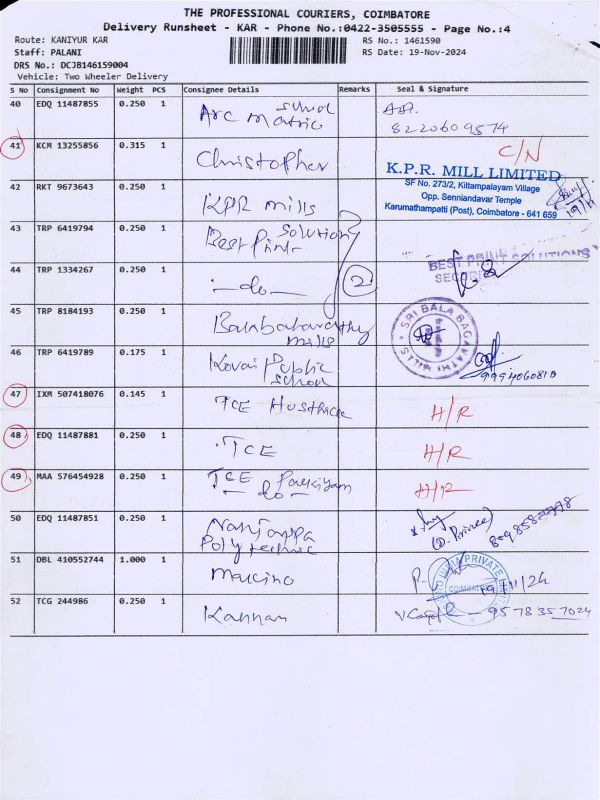 THE PROFESSIONAL COURIERS, COIMBATORE
Delivery Runsheet - KAR - Phone No.:0422-3505555 - Page No.:4
Route: KANIYUR KAR RS No.: 1461590
Staff: PALANI RS Date: 19-Nov-2024
DRS No.: DCJB146159004
Vehicle: Two Wheeler Delivery
S No Consignment No Weight PCS Consignee Details Remarks Seal & Signature
40 EDQ 11487855 0.250 1 Arc matric school
8220609574
41 KCM 13255856 0.315 1 Christopher C/N
K.P.R. MILL LIMITED
SF No. 273/2, Kittampalayam Village
Opp. Senniandavar Temple
Karumathampatti (Post), Coimbatore - 641 659
42 RKT 9673643 0.250 1 KPR mills
43 TRP 6419794 0.250 1 Best Print Solution
BEST PRINT SOLUTIONS
44 TRP 1334267 0.250 1 - do - 2
45 TRP 8184193 0.250 1 mills
SRI BALA BAGAVATHI MILLS
46 TRP 6419789 0.175 1 Kovai Public School
9994060810
47 IXM 507418076 0.145 1 TCE H/R
48 EDQ 11487881 0.250 1 TCE H/R
49 MAA 576454928 0.250 1 TCE H/R
- do -
50 EDQ 11487851 0.250 1 Nanjappa
Polytechnic
51 DBL 410552744 1.000 1 Makino
INDIA PRIVATE
COIMBATORE
52 TCG 244986 0.250 1 Kannan 9578357024